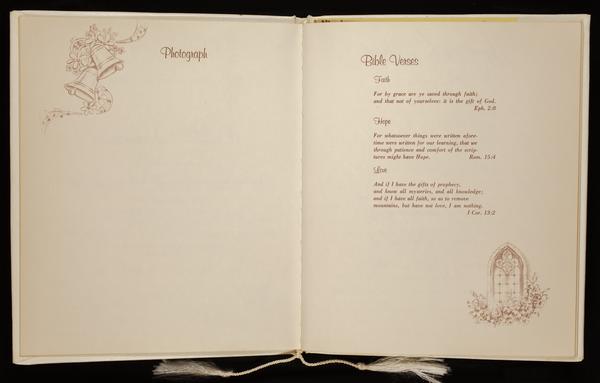 Photograph
Bible Verses
Faith
For by grace are ye saved through faith;
and that not of yourselves: it is the gift of God.
Eph. 2:8
Hope
For whatsoever things were written afore-
time were written for our learning, that we
through patience and comfort of the scrip-
tures might have Hope. Rom. 15:4
Love
And if I have the gifts of prophecy,
and know all mysteries, and all knowledge;
and if I have all faith, so as to remove
mountains, but have not love, I am nothing.
I Cor. 13:2